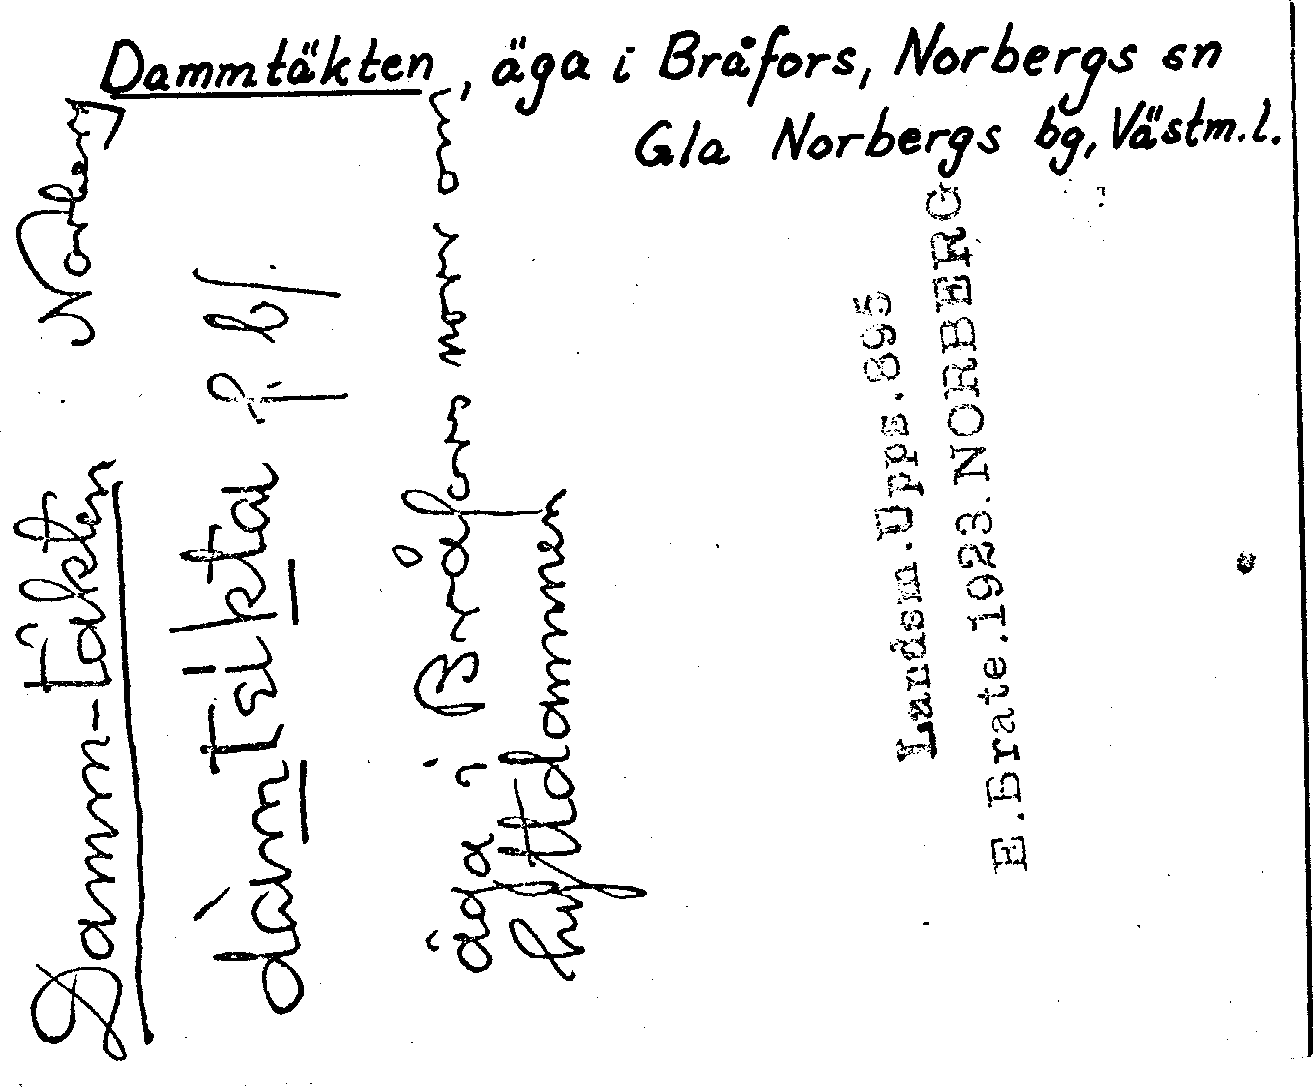 Dammtäkten, äga i Bråfors, Norbergs sn
Gla Norbergs bg, Västm.l.
Damm-täkten Norberg
äga i Bråfors norr om
hyttdammen
Landsm.Upps.895
E.Brate.1923.NORBERG